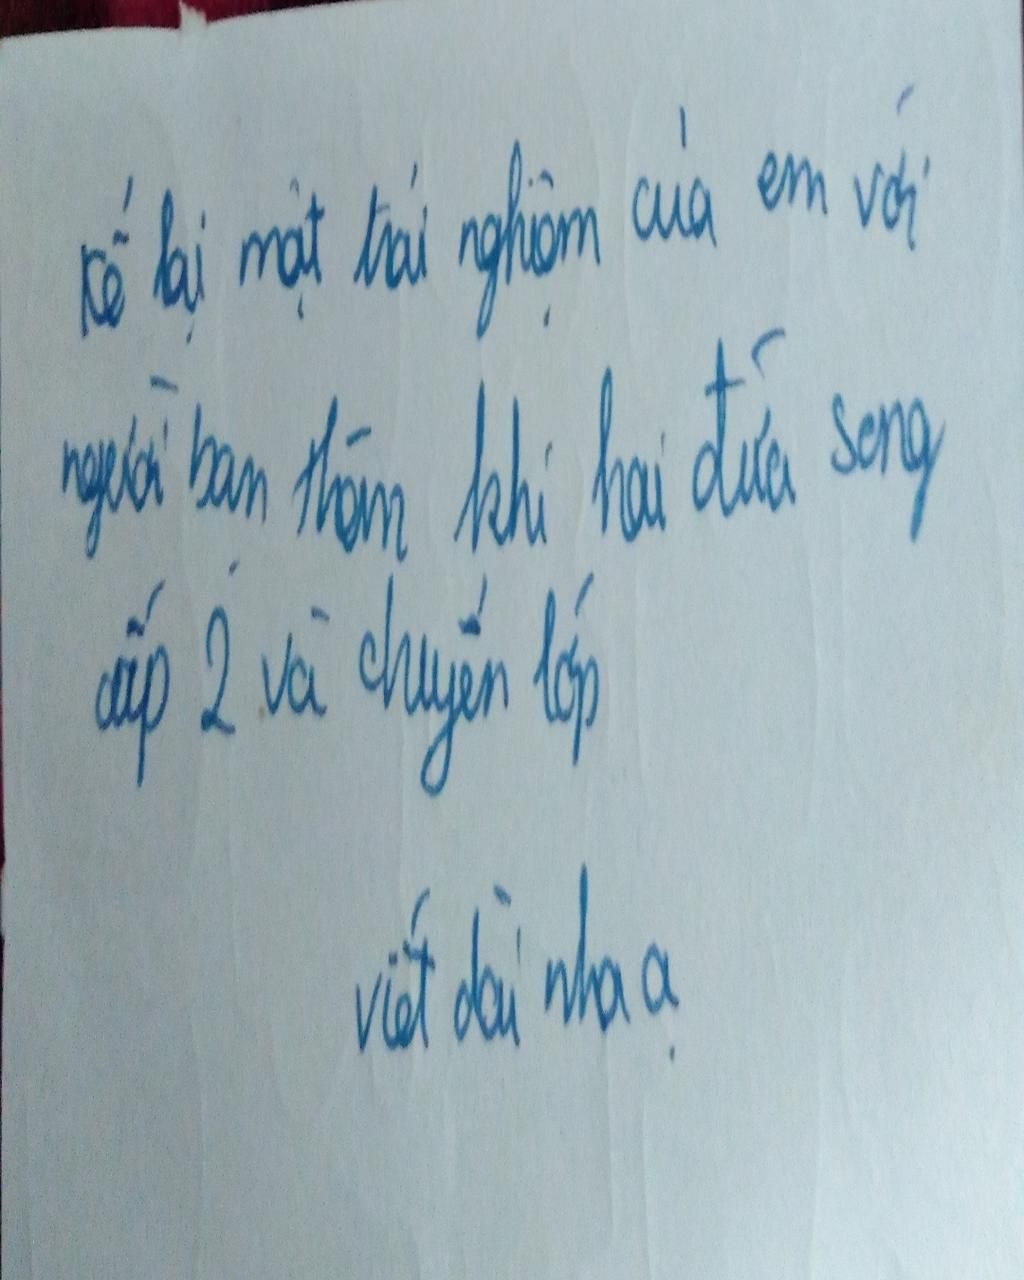 Kể lại một trải nghiệm của em với
người bạn thân khi hai đứa song
cấp 2 và chuyển lớp
viết dài nha ạ